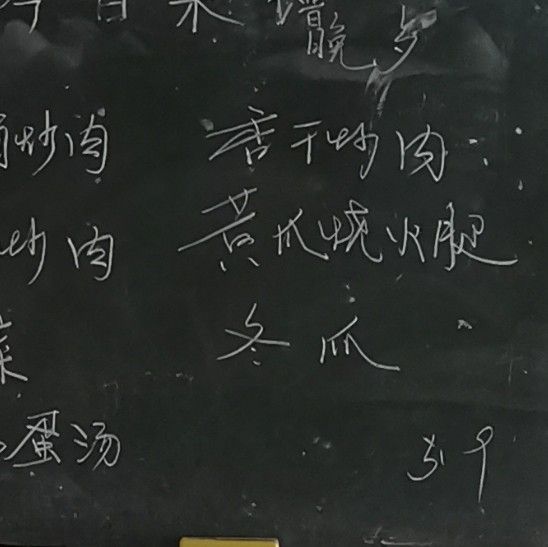 今日菜谱
晚
炒肉 香干炒肉
炒肉 黄瓜烧火腿
菜 冬瓜
蛋汤 5.9